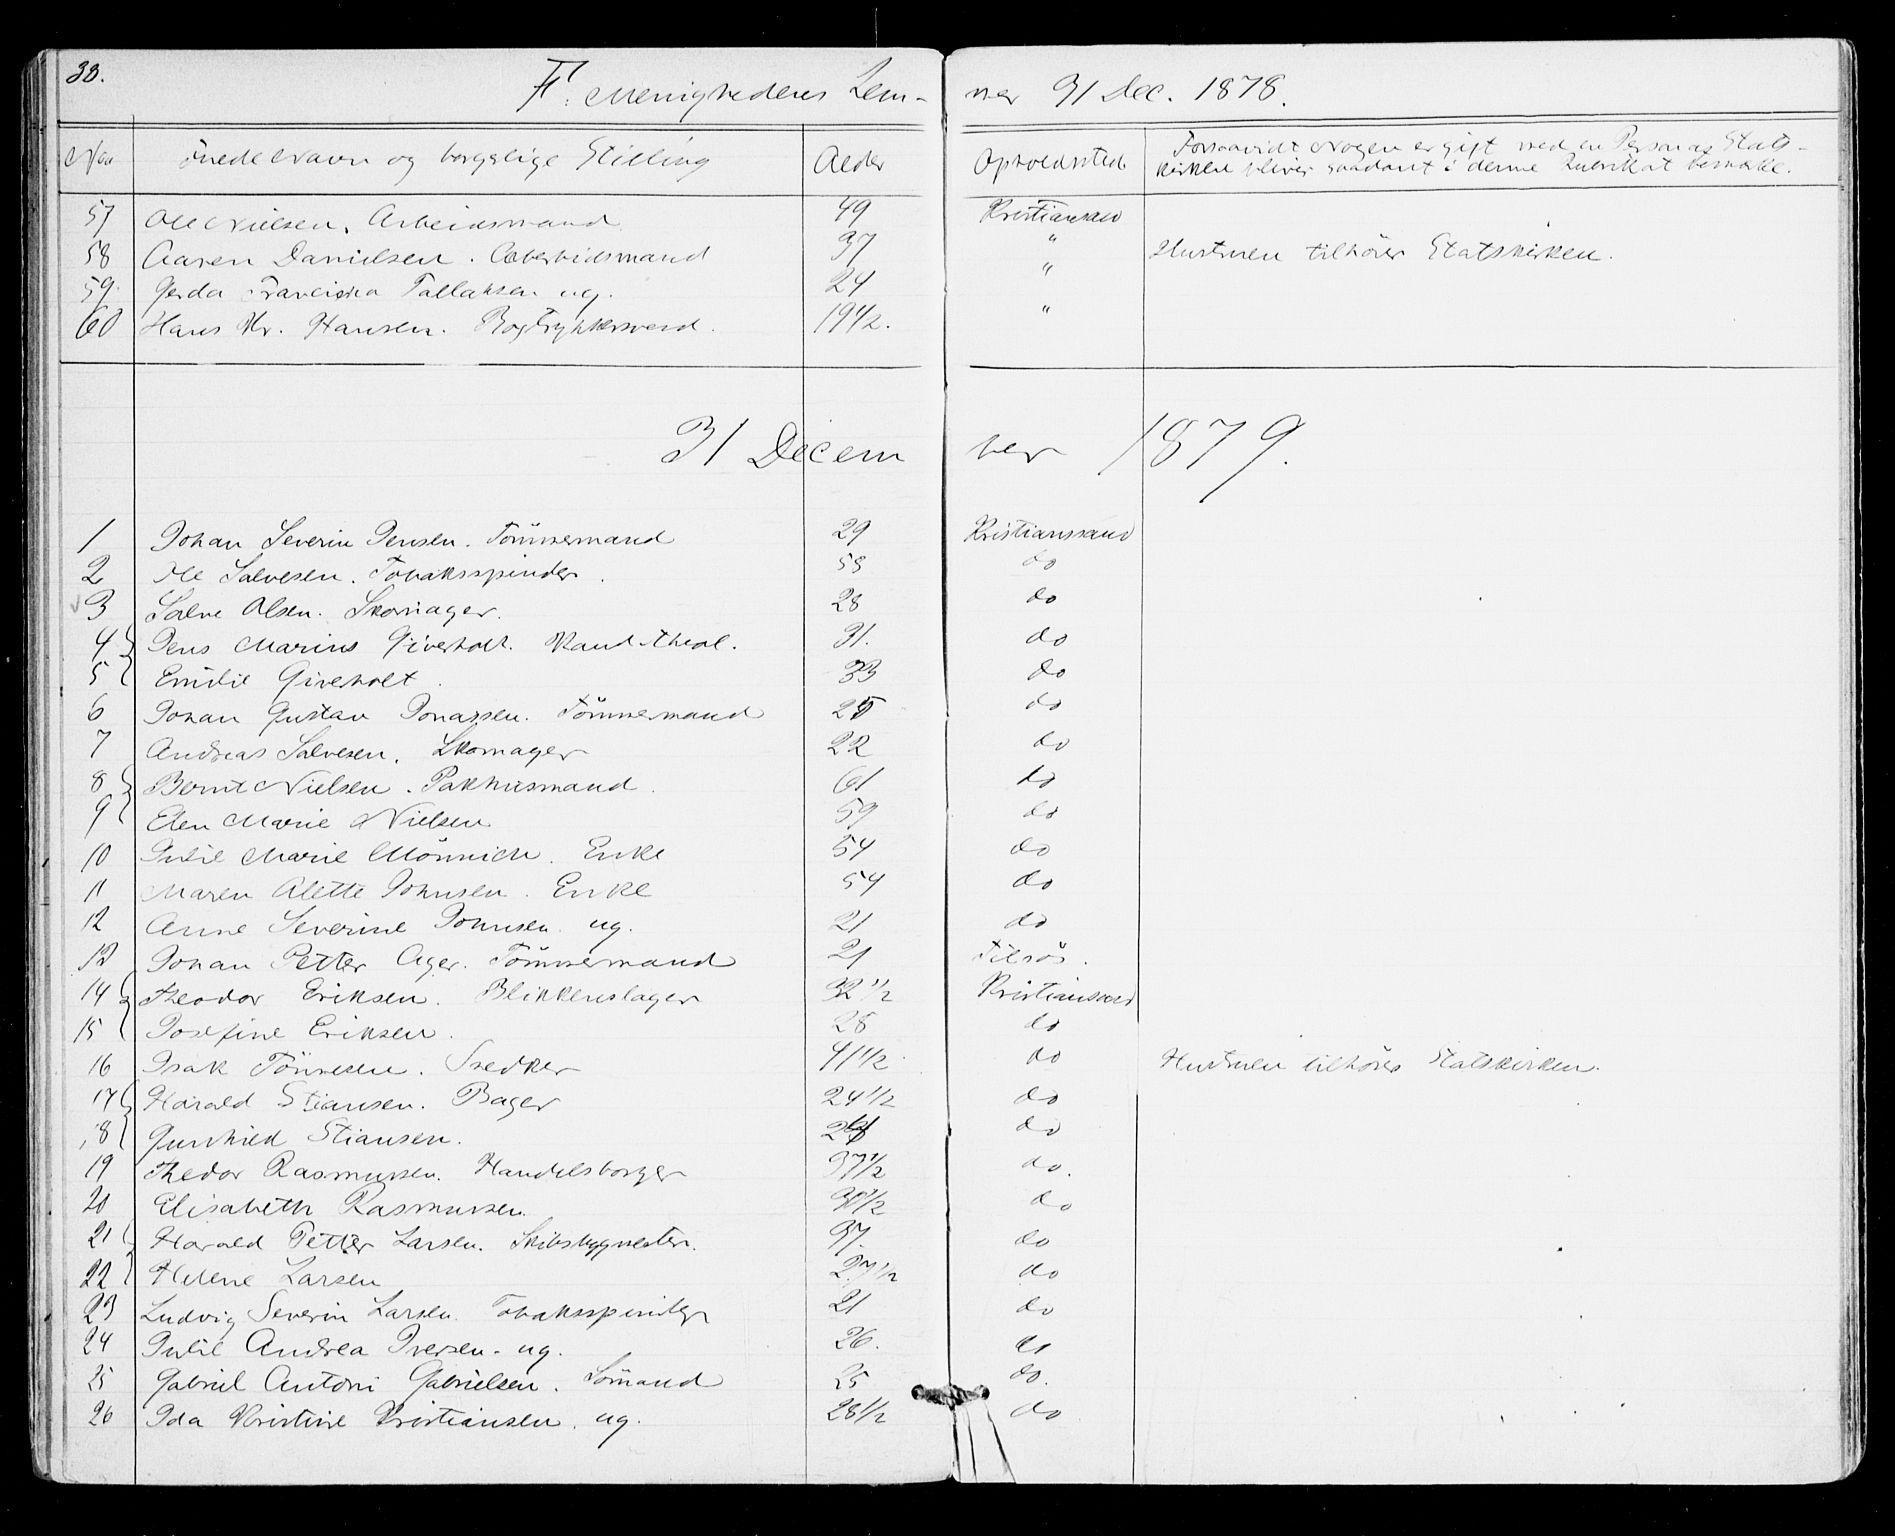 38.
F. Menighedens Lem- mer 31 Dec. 1878.
Nor Fulde Navn og borgelige Stilling Alder Opholdssted Forsaavidt Nogen er gift med en Person af Stats-
kirken bliver saadant i denne Rubrik at bemærke.
57 Ole Nielsen. Arbeidsmand 49 Kristianssand
58 Aaren Danielsen. Arbeidsmand 37 " Hustruen tilhörer Statskirken.
59. Gerda Franciska Tallaksen ug. 24 "
60 Hans Kr. Hansen. Bogtrykkersvend. 19 1/2. "
31 Decem ber 1879.
1 Johan Severin Jensen. Tömmermand 29 Kristianssand
2 Ole Salvesen. Tobaksspinder. 58 do
3 Salve Olsen. Skomager. 28 do
4 Jens Marius Giverholt. Kand. theol. 31. do
5 Emilie Giverholt. 33 do
6 Johan Gustav Jonassen. Tömmermand 25 do
7 Andreas Salvesen. Skomager 22 do
8 Bernt Nielsen. Pakhusmand. 61 do
9 Elen Marie Nielsen 59 do
10 Julie Marie Mönnich. Enke 54 do
11 Maren Alette Johnsen. Enke 54 do
12 Anne Severine Johnsen ug. 21 do
13 Johan Petter Ager. Tömmermand 21 .
14 Theodor Eriksen. Blikkenslager 32 1/2 Kristianssand
15 Josefine Eriksen. 28 do
16 Isak Tönnesen. Snedker 41 1/2 do Hustruen tilhörer Statskirken.
17 Harald Stiansen. Bager 24 1/2 do
18 Gunhild Stiansen. do
19 Thedor Rasmussen. Handelsborger 37 1/2 do.
20 Elisabeth Rasmussen. 30 1/2 do
21 Harald Petter Larsen. Skibsbygmester. 37. do
22 Helene Larsen 27 1/2 do
23 Ludvig Severin Larsen. Tobaksspinder 21 do
24 Julie Andrea Iversen. ug. 26. do
25 Gabriel Antoni Gabrielsen. Sömand 25 do.
26 Ida Kristine Kristiansen. ug. 28 1/2 do